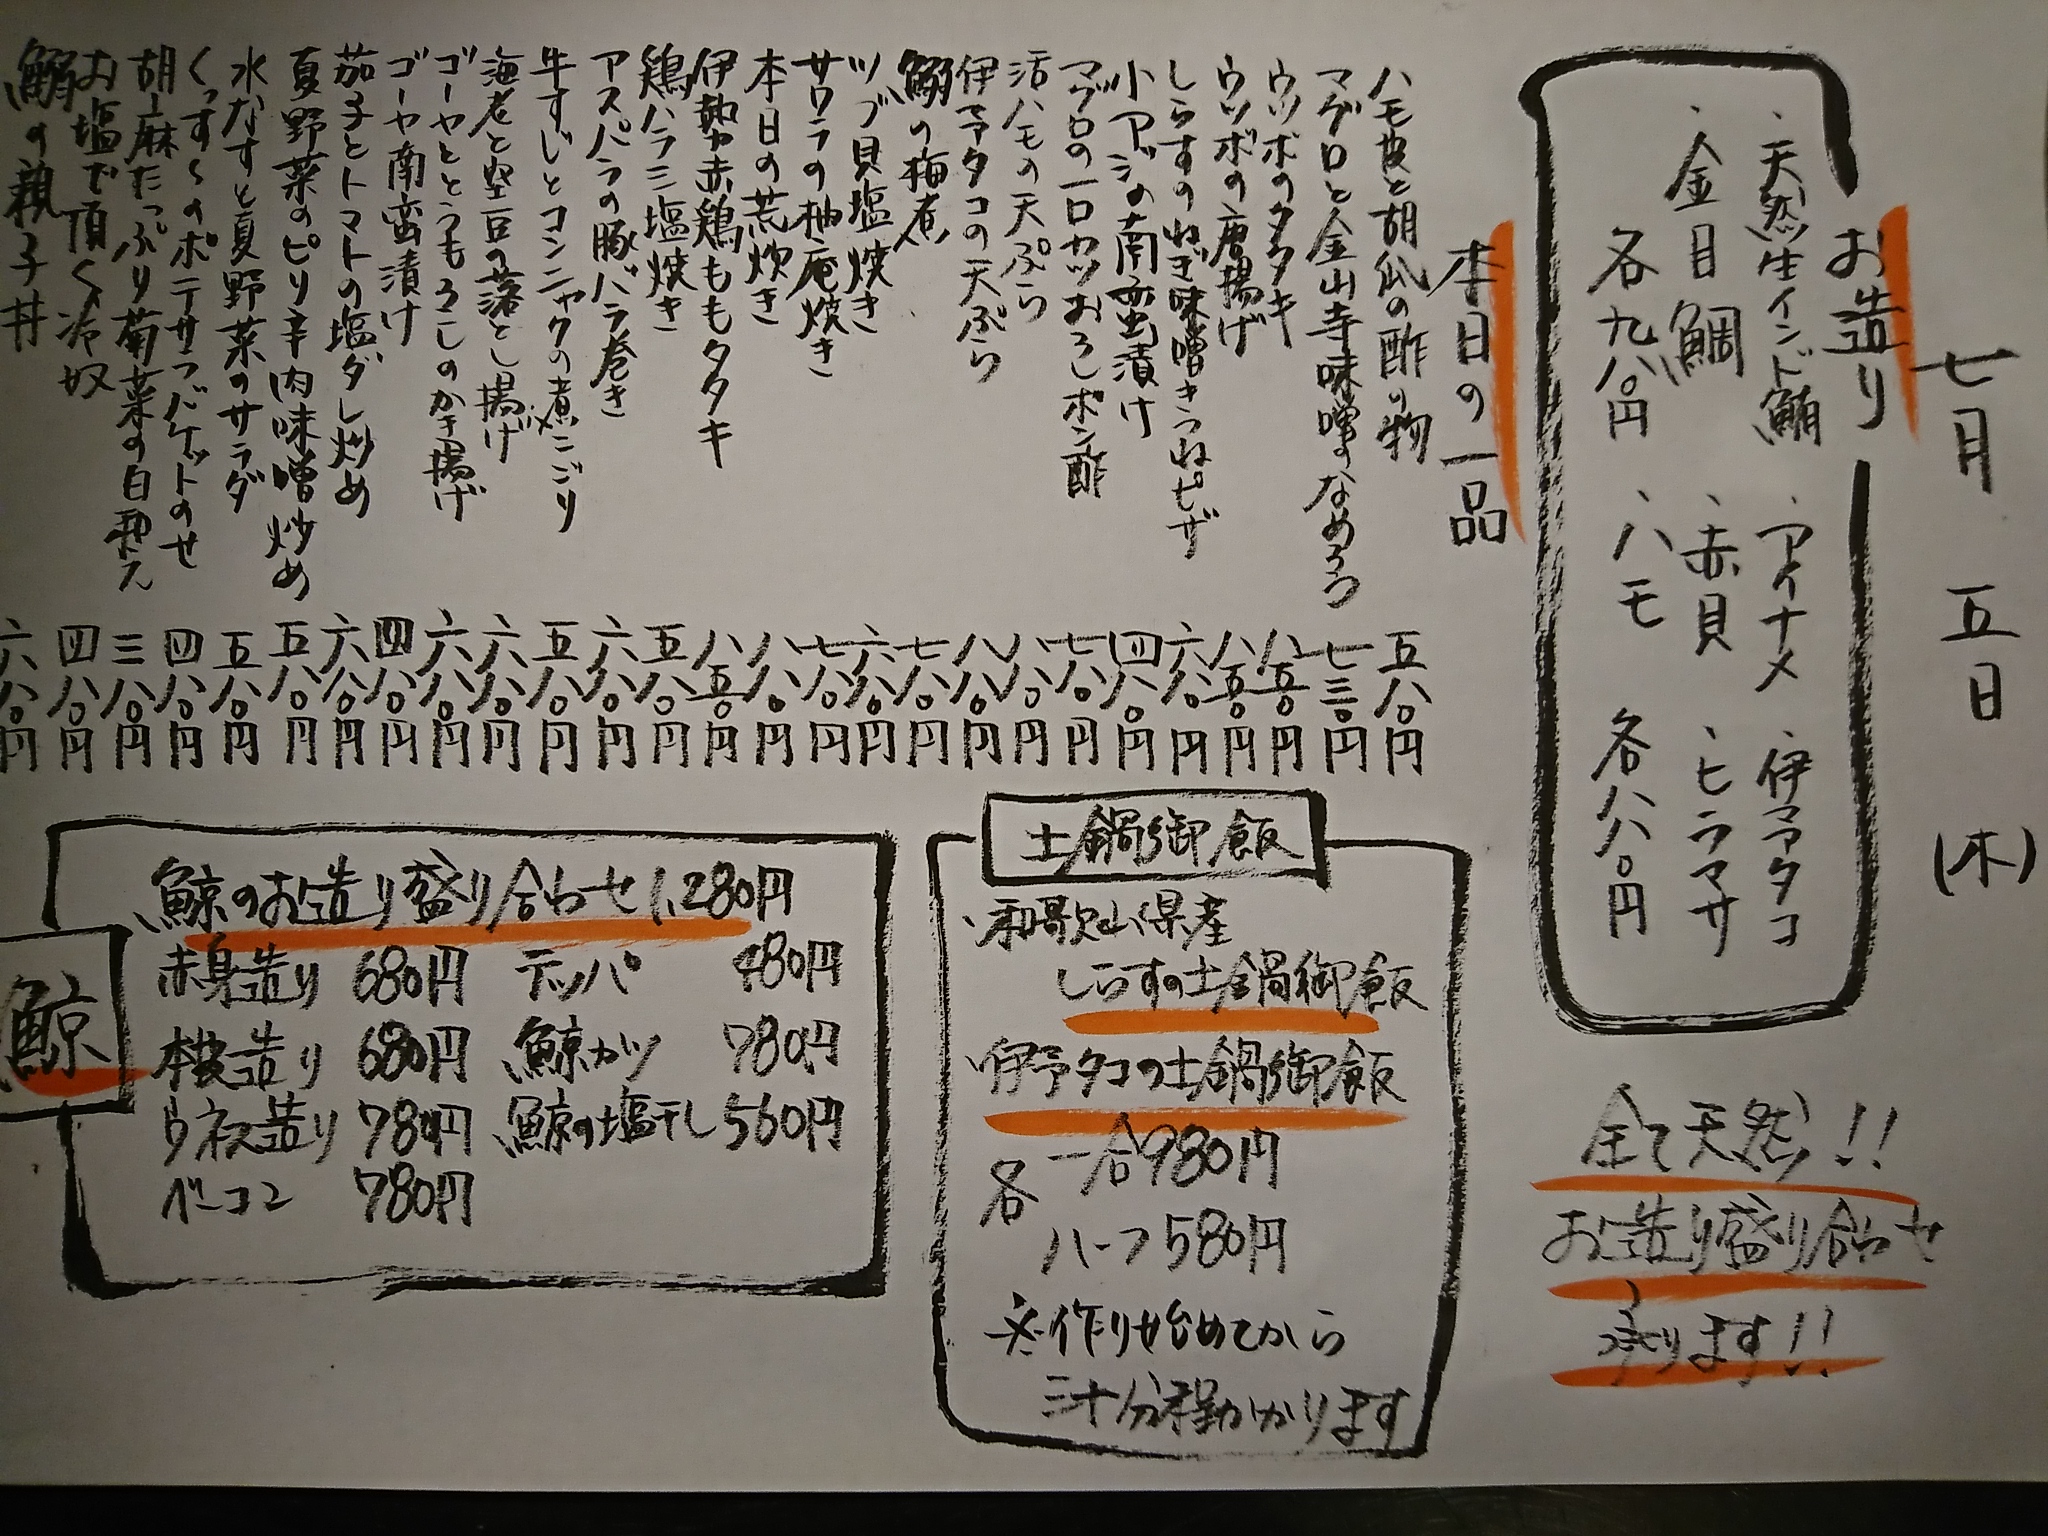 七月 五日 (木)
お造り
・天然生インド鮪 ・アイナメ ・伊予タコ
・金目鯛 ・赤貝 ・ヒラマサ
各九八〇円 ・ハモ 各八八〇円
全て天然!!
お造り盛り合わせ
承ります!!
本日の一品
ハモ皮と胡瓜の酢の物 五八〇円
マグロと金山寺味噌のなめろう 七三〇円
ウツボのタタキ 八五〇円
ウツボの唐揚げ 八五〇円
しらすのねぎ味噌きつねピザ 六八〇円
小アジの南蛮漬け 四八〇円
マグロの一口カツおろしポン酢 七八〇円
活ハモの天ぷら 八八〇円
伊予タコの天ぷら 八八〇円
の梅煮 七八〇円
ツブ貝塩焼き 六八〇円
サワラの柚庵焼き 七八〇円
本日の荒炊き 八八〇円
伊勢赤鶏ももタタキ 八五〇円
鶏ハラミ塩焼き 五八〇円
アスパラの豚バラ巻き 六八〇円
牛すじとコンニャクの煮こごり 五八〇円
海老と空豆の落とし揚げ 六八〇円
ゴーヤととうもろこしのかき揚げ 六八〇円
ゴーヤ南蛮漬け 四八〇円
茄子とトマトの塩ダレ炒め 六八〇円
夏野菜のピリ辛肉味噌炒め 五八〇円
水なすと夏野菜のサラダ 五八〇円
のポテサラバケットのせ 四八〇円
胡麻たっぷり菊菜の白和え 三八〇円
お塩で頂く冷奴 四八〇円
の親子丼 六八〇円
土鍋御飯
・和歌山県産
しらすの土鍋御飯
・伊予タコの土鍋御飯
各 一合980円
ハーフ580円
※作り始めてから
三十分程かかります
鯨
鯨のお造り盛り合わせ1,280円
赤身造り 680円 テッパ 480円
本皮造り 680円 鯨カツ 780円
ウネス造り 780円 鯨の塩干し 560円
ベーコン 780円